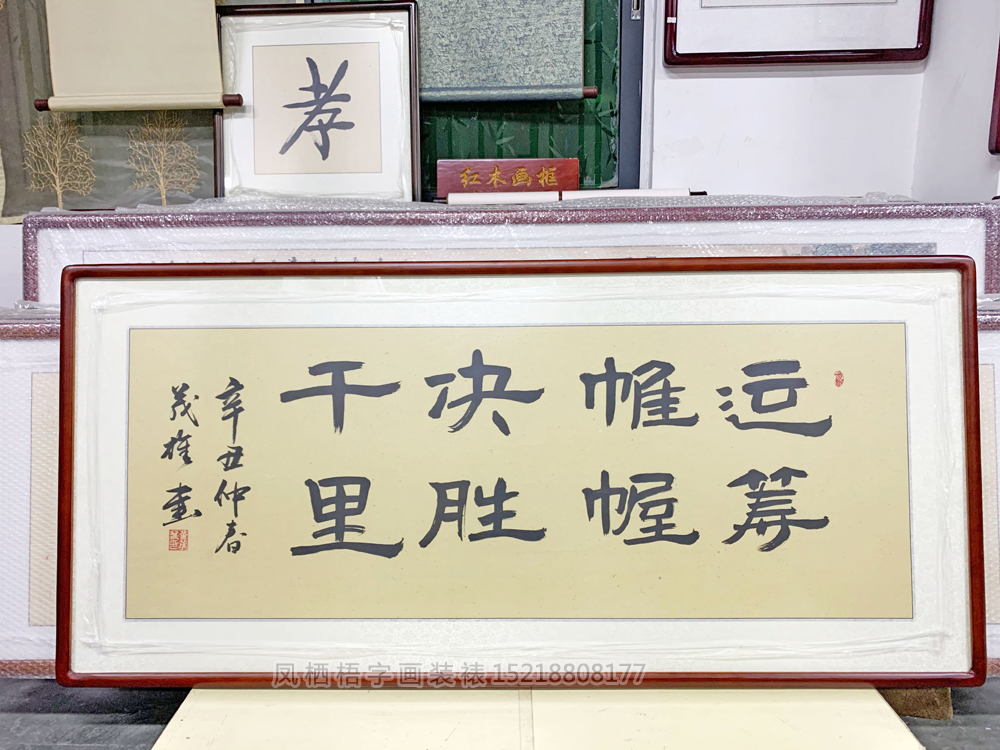 孝
红木画框
运筹
帷幄
决胜
千里
辛丑仲春
茂雄书
凤栖梧字画装裱15218808177